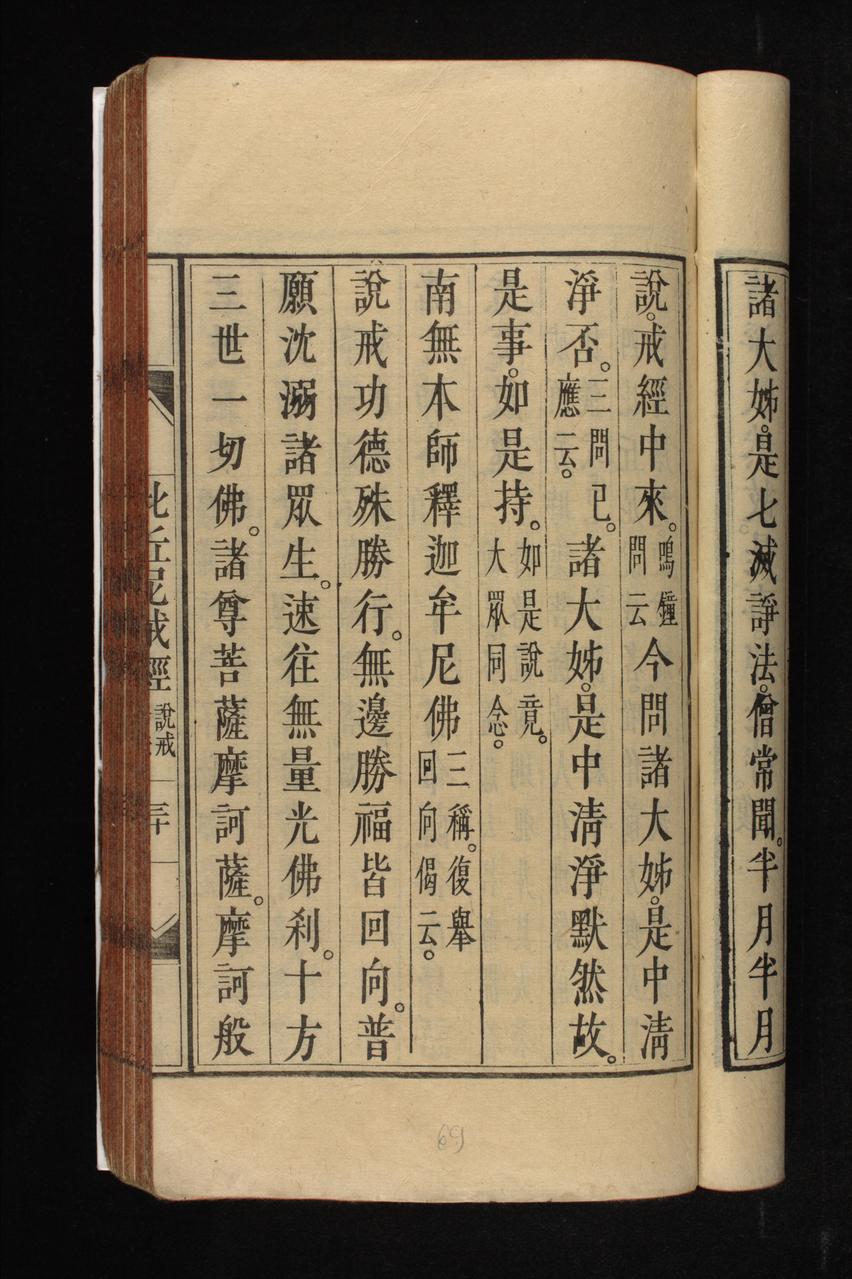 諸大姊。是七滅諍法。僧常聞。半月半月
說。戒經中來。鳴鐘問云今問諸大姊。是中清
淨否。三問已。應云。諸大姊。是中清淨默然故。
是事。如是持。如是說竟。大眾同念。
南無本師釋迦牟尼佛三稱。復舉回向偈云。
說戒功德殊勝行。無邊勝福皆回向。普
願沈溺諸眾生。速往無量光佛剎。十方
三世一切佛。諸尊菩薩摩訶薩。摩訶般
比丘尼戒經 說戒
69